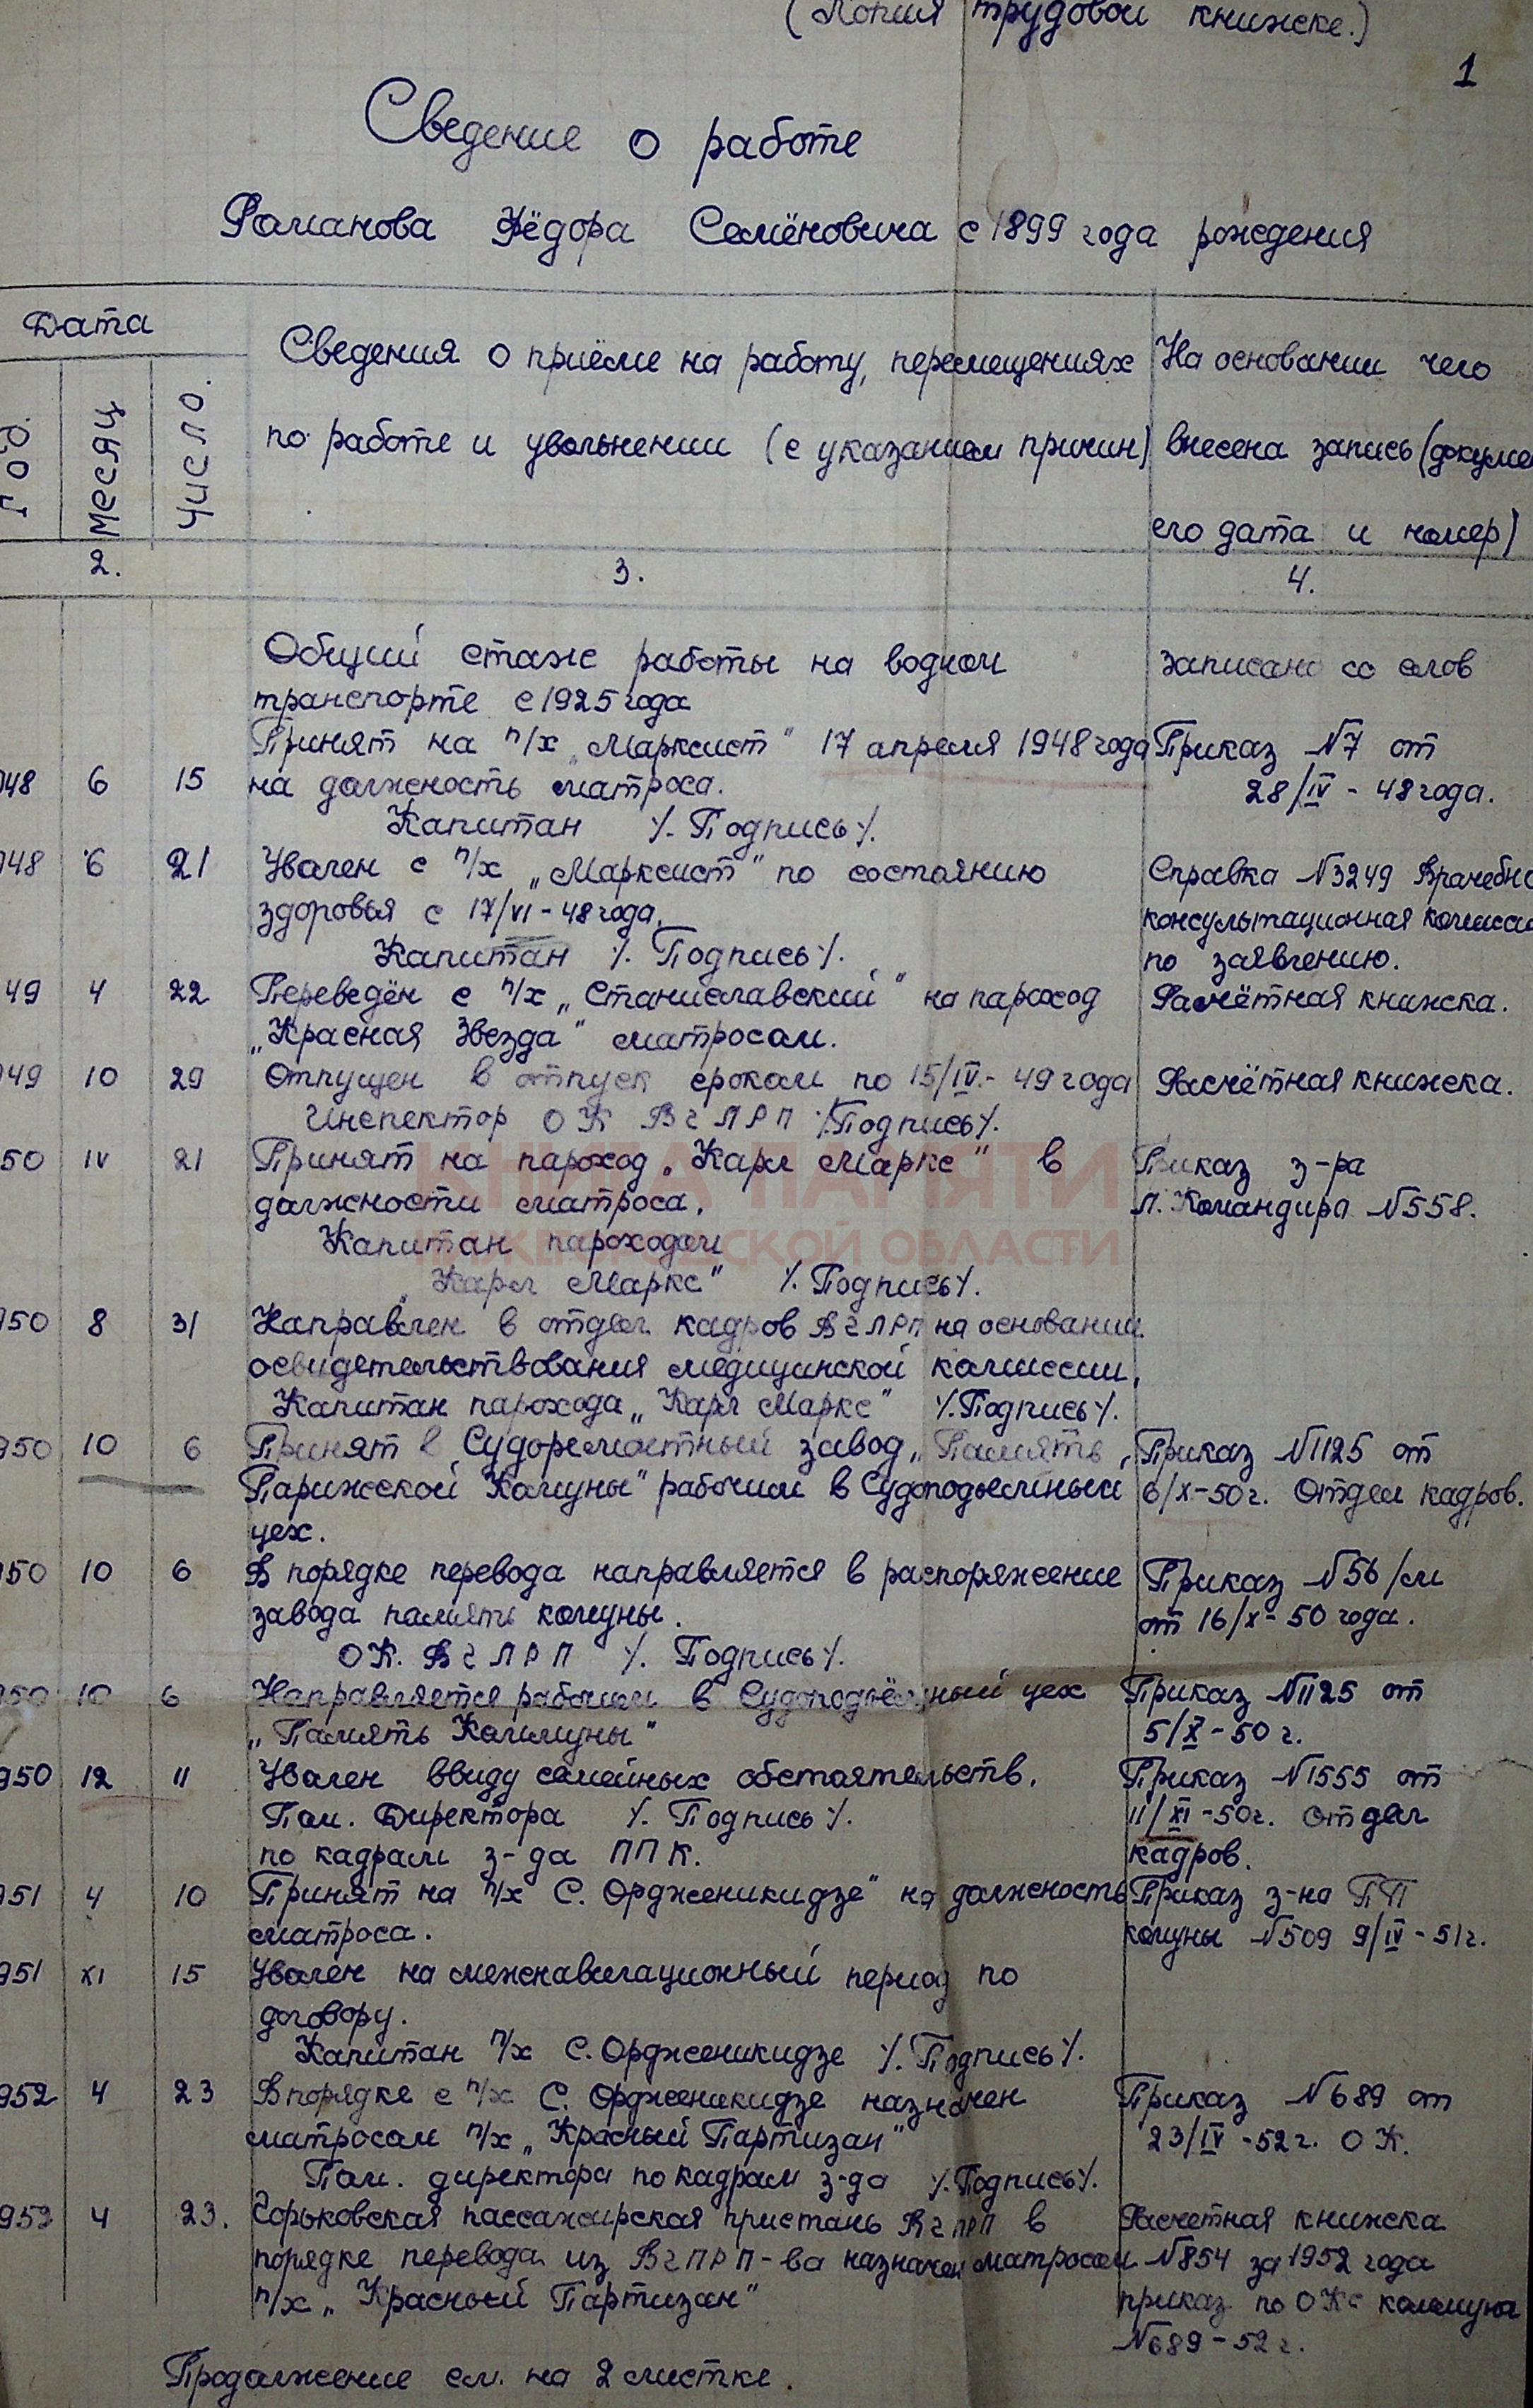 (Копия трудовой книжке.)
1
Сведение о работе
Романова Фёдора Семёновича с 1899 года рождения
Дата
Сведения о приёме на работу, перемещениях
На основании чего
Год.
Месяц
Число.
по работе и увольнении (с указанием причин)
внесена запись (докумен
его дата и номер)
2.
3.
4.
Общий стаж работы на водном
записано со слов
транспорте с 1925 года
Принят на п/х „Марксист" 17 апреля 1948 года
Приказ №7 от
948 6 15 на должность матроса.
28/IV - 48 года.
Капитан /. Подпись/.
948 6 21 Уволен с п/х „Марксист" по состоянию
Справка №3249 Врачебно
здоровья с 17/VI - 48 года.
консультационная комисси
Капитан /. Подпись/.
по заявлению.
949 4 22 Переведён с п/х „Станиславский" на пароход
Расчётная книжка.
„Красная Звезда" матросом.
949 10 29 Отпущен в отпуск сроком по 15/IV.- 49 года
Расчётная книжка.
Инспектор ОК ВГЛРП /.Подпись/.
КНИГА ПАМЯТИ
50 IV 21 Принят на пароход „Карл Маркс" в
Приказ з-ра
должности матроса.
Л. Командира №558.
НИЖЕГОРОДСКОЙ ОБЛАСТИ
Капитан пароходом
„Карл Маркс" /. Подпись/.
950 8 31 Направлен в отдел кадров ВГЛРП на основании
освидетельствования медицинской комиссии.
Капитан парохода „Карл Маркс" /.Подпись/.
950 10 6 Принят в Судоремонтный завод „Память
Приказ №1125 от
Парижской Комуны" рабочим в Судоподъемный
6/X-50г. Отдел кадров.
цех.
950 10 6 В порядке перевода направляется в распоряжение
Приказ №56/м
завода память комуны.
от 16/X- 50 года.
ОК. ВГЛРП /. Подпись/.
950 10 6 Направляется рабочим в Судоподъёмный цех
Приказ №1125 от
„Память Коммуны"
5/X - 50 г.
950 12 11 Уволен ввиду семейных обстоятельств.
Приказ №1555 от
Пом. Директора /. Подпись/.
11/XI -50г. Отдел
по кадрам з-да ППК.
кадров.
951 4 10 Принят на п/х С. Орджоникидзе" на должность
Приказ з-на ПП
матроса.
комуны №509 9/IV - 51г.
951 XI 15 Уволен на межнавигационный период по
договору.
Капитан п/х С. Орджоникидзе /. Подпись/.
952 4 23 В порядке с п/х С. Орджоникидзе назначен
Приказ №689 от
матросом п/х „Красный Партизан"
23/IV -52г. ОК.
Пом. директора по кадрам з-да /.Подпись/.
952 4 23. Горьковская пассажирская пристань ВГПРП в
Расчетная книжка
порядке перевода из ВГПРП-ва назначен матросом
№854 за 1952 года
п/х „Красный Партизан"
приказ по ОК коммуна
№689 - 52 г.
Продолжение см. на 2 листке.